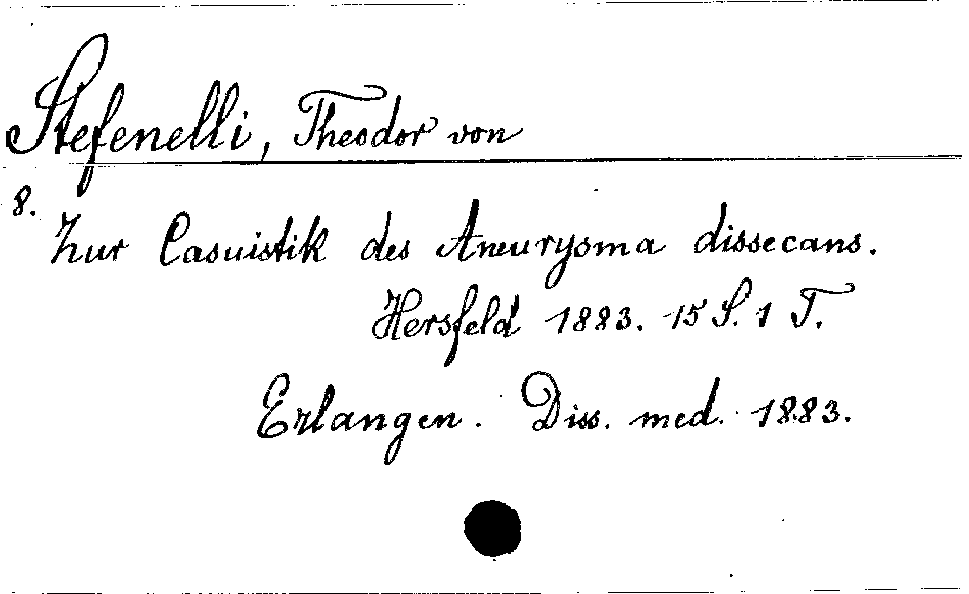 Stefenelli, Theodor von
8.
Zur Casuistik des Aneurysma dissecans.
Hersfeld 1883. 15 S. 1 T.
Erlangen. Diss. med. 1883.